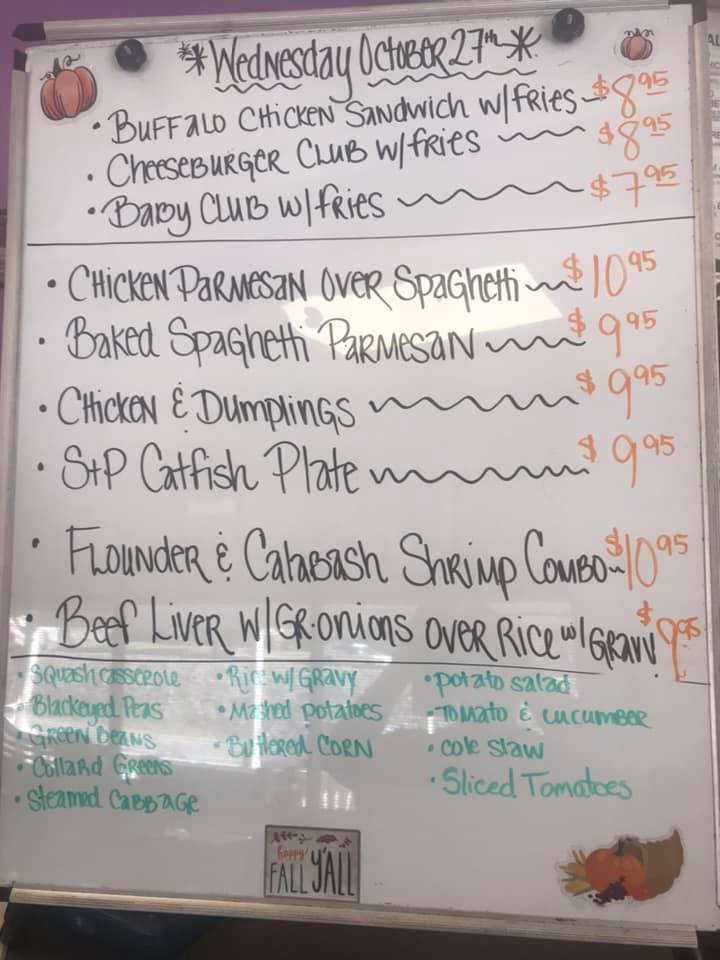 *Wednesday October 27th*
• Buffalo Chicken Sandwich w/fries $8.95
• Cheeseburger Club w/fries $8.95
• Baby Club w/fries $7.95
• Chicken Parmesan over Spaghetti $10.95
• Baked Spaghetti Parmesan $9.95
• Chicken & Dumplings $9.95
• S+P Catfish Plate $9.95
• Flounder & Calabash Shrimp Combo $10.95
• Beef Liver w/Gr. onions over Rice w/ Gravy $9.95
• Squash casserole
• Blackeyed Peas
• Green Beans
• Collard Greens
• Steamed Cabbage
• Rice w/ Gravy
• Mashed Potatoes
• Buttered Corn
• potato salad
• Tomato & cucumber
• cole slaw
• Sliced Tomatoes
happy
FALL Y'ALL